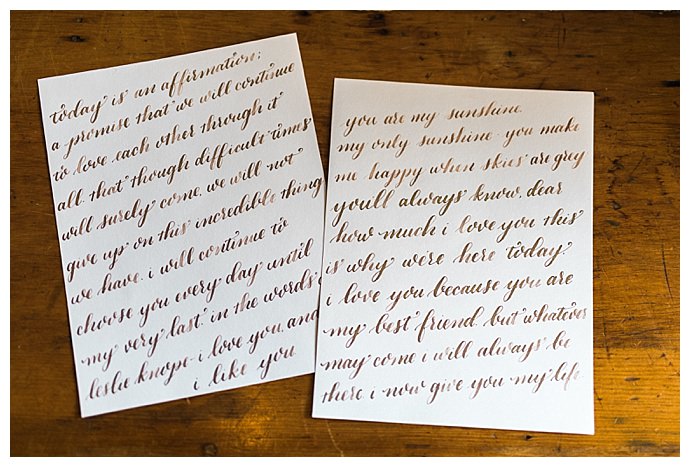 today is an affirmation;
a promise that we will continue
to love each other through it
all. that though difficult times
will surely come, we will not
give up on this incredible thing
we have. i will continue to
choose you every day until
my very last. in the words
leslie knope - i love you, and
i like you.
you are my sunshine.
my only sunshine. you make
me happy when skies are grey
you'll always know, dear
how much i love you this
is why we're here today.
i love you because you are
my best friend. but whatever
may come i will always be
there. i now give you my life